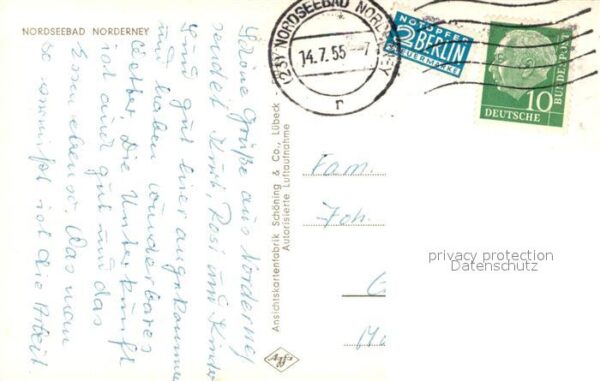 NORDSEEBAD NORDERNEY
Schöne Grüße aus Norderney
sendet Kurt, Rosi und Kinder
Sind gut hier angekommen
und haben wunderbares
Wetter. Die Unterkunft
ist auch gut und das
Essen ebenso. Was man
so vermißt ist die Arbeit.
Ansichtskartenfabrik Schöning & Co., Lübeck
Autorisierte Luftaufnahme
Agfa
(23) NORDSEEBAD NORDERNEY
14.7.55 - 7
r
NOTOPFER
2 BERLIN
STEUERMARKE
10
DEUTSCHE
BUNDESPOST
Fam.
Joh.
privacy protection
Datenschutz